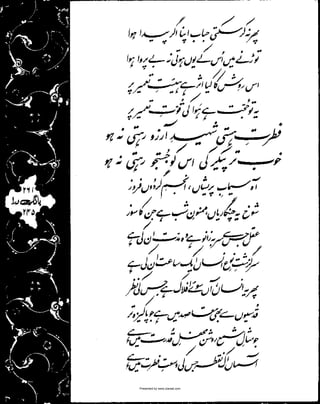 پھر نہ کر سکتی حباب اپنا اگر پیدا ہوا
توڑنے میں اُس کے یوں ہوتی نہ بے پروا ہوا
اس روش کا کیا اثر ہے ہیئتِ تعمیر پر
یہ تو حجت ہے ہوا کی قوتِ تعمیر پر
فطرتِ ہستی شہیدِ آرزو رہتی نہ ہو
خوب تر پیکر کی اس کو جستجو رہتی نہ ہو
آہ سیمابِ پریشاں، انجمِ گردوں فروز
شوخ یہ چنگاریاں، ممنونِ شب ہے جن کا سوز
عقل جس سے سر بہ زانو ہے وہ مدت ان کی ہے
سرگزشتِ نوعِ انساں ایک ساعت ان کی ہے
پھر یہ انساں، آں سوئے افلاک ہے جس کی نظر
قدسیوں سے بھی مقاصد میں ہے جو پاکیزہ تر
جو مثالِ شمع روشن محفلِ قدرت میں ہے
آسماں اک نقطہ جس کی وسعتِ فطرت میں ہے
۲۹۱
بانگِ درا
۲۳۵
Presented by www.ziaraat.com